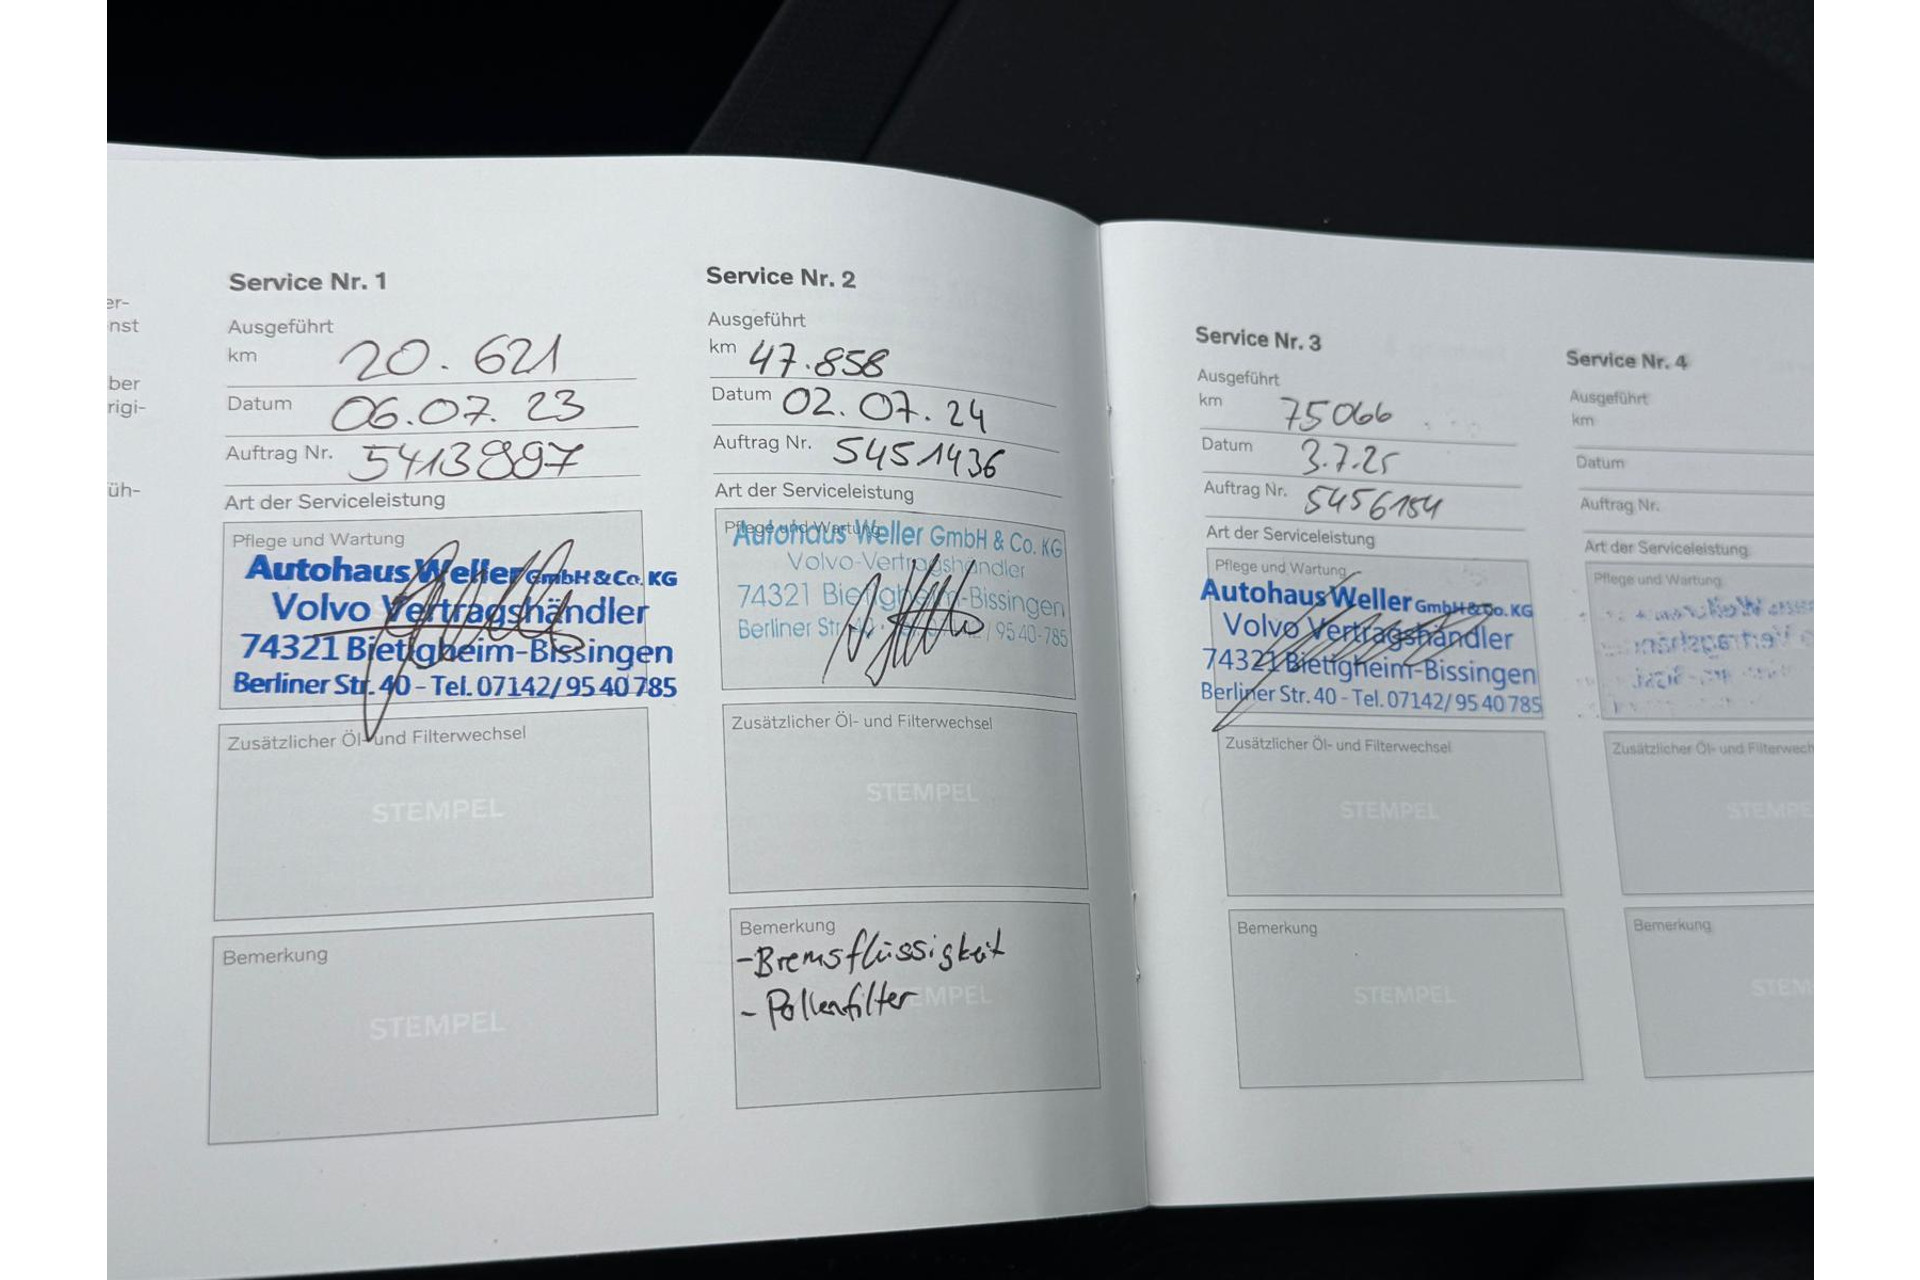 er-
nst
ber
rigi-
üh-
Service Nr. 1
Ausgeführt
km 20.621
Datum 06.07.23
Auftrag Nr. 5413897
Art der Serviceleistung
Pflege und Wartung
Autohaus Weller GmbH & Co. KG
Volvo Vertragshändler
74321 Bietigheim-Bissingen
Berliner Str. 40 - Tel. 07142/95 40 785
Zusätzlicher Öl- und Filterwechsel
STEMPEL
Bemerkung
STEMPEL
Service Nr. 2
Ausgeführt
km 47.858
Datum 02.07.24
Auftrag Nr. 5451436
Art der Serviceleistung
Pflege und Wartung
Autohaus Weller GmbH & Co. KG
Volvo-Vertragshändler
74321 Bietigheim-Bissingen
Berliner Str. 40 · Tel. 07142/95 40-785
Zusätzlicher Öl- und Filterwechsel
STEMPEL
Bemerkung
- Bremsflüssigkeit
- Pollenfilter
STEMPEL
Service Nr. 3
Ausgeführt
km 75066
Datum 3.7.25
Auftrag Nr. 5456154
Art der Serviceleistung
Pflege und Wartung
Autohaus Weller GmbH & Co. KG
Volvo Vertragshändler
74321 Bietigheim-Bissingen
Berliner Str. 40 - Tel. 07142/95 40 785
Zusätzlicher Öl- und Filterwechsel
STEMPEL
Bemerkung
STEMPEL
Service Nr. 4
Ausgeführt
km
Datum
Auftrag Nr.
Art der Serviceleistung
Pflege und Wartung
Zusätzlicher Öl- und Filterwech
STEMPE
Bemerkung
STEM